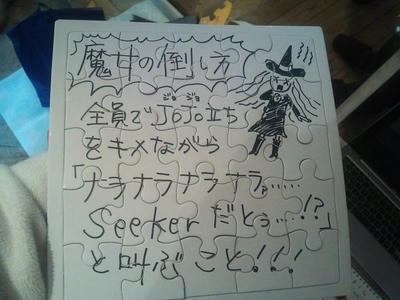 魔女の倒し方
ジョジョ
全員でJoJo立ち
をキメながら
「ナラナラナラナラ……
Seekerだとぅ…!?」
と叫ぶこと!!!